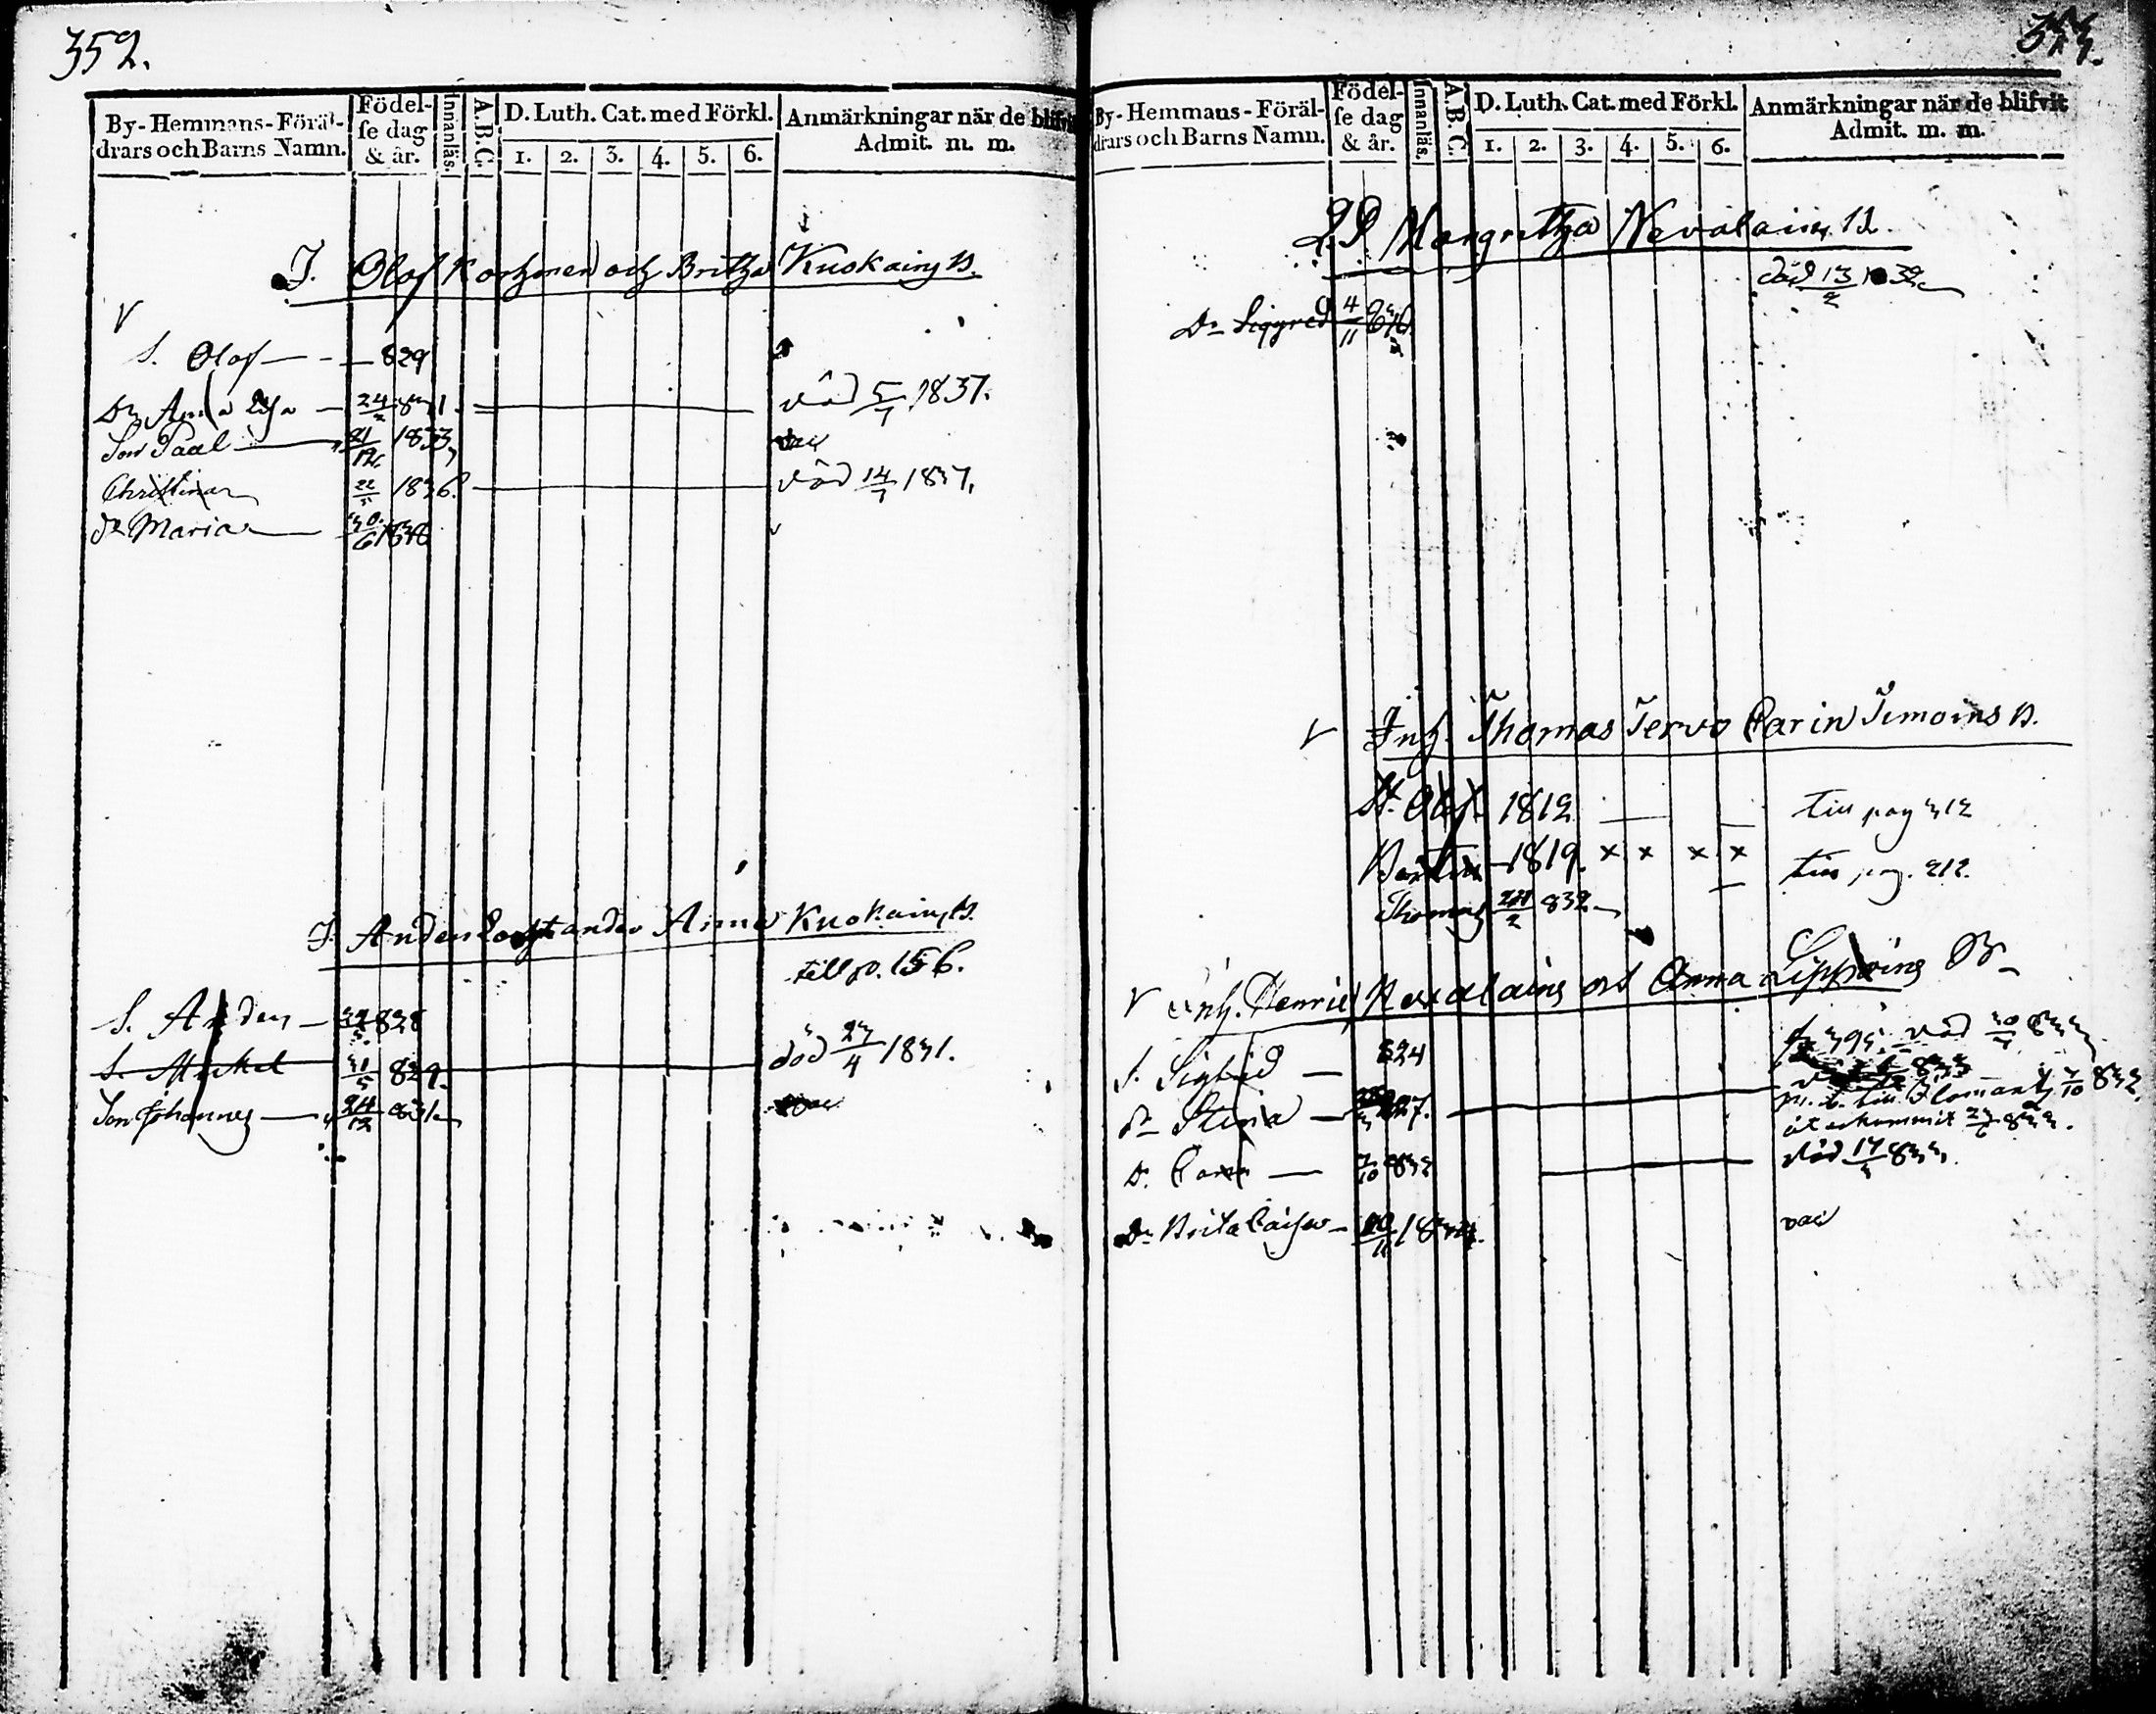 352.
By-Hemmans-Föräl-
drars och Barns Namn.
Födel-
se dag
& år.
Innanläs.
A.B.C.
D. Luth. Cat. med Förkl.
1. 2. 3. 4. 5. 6.
Anmärkningar när de blifvit
Admit. m. m.
J. Olof Korhonen och Britha Kuokain D.
S. Olof — 829
Dr Anna Lisa — 24/2 831 död 5/7 1837.
Son Paal — 21/12 1833 vac
Christina 22/5 1836. död 14/7 1837.
Dr Maria — 30/6 1838
J. Anders Anna Kuokain D.
till p. 156.
S. Anders — 828
S. Mickel 31/5 829. död 23/4 1831.
Son Johannes — 24/12 831
353.
By-Hemmans-Föräl-
drars och Barns Namn.
Födel-
se dag
& år.
Innanläs.
A.B.C.
D. Luth. Cat. med Förkl.
1. 2. 3. 4. 5. 6.
Anmärkningar när de blifvit
Admit. m. m.
Margretha Nevalain D.
död 13/2 1832
Dr Siggred 4/11
Inh. Thomas Tervo Carin Timoins D.
Olof 1812 till pag 312
1819. x x x x till pag. 212.
Thomas 832
Inh. Henric Nevalains och Anna Lippoins Dr
S. Sigfrid — 824 p. 395. död 833
Dr Stina — 827. till Ilomants 7/10 832.
återkommit 833.
D. Carin — 7/10 832 död 17/3 833.
Dr Brita Caisa — 20/11 1834. vac